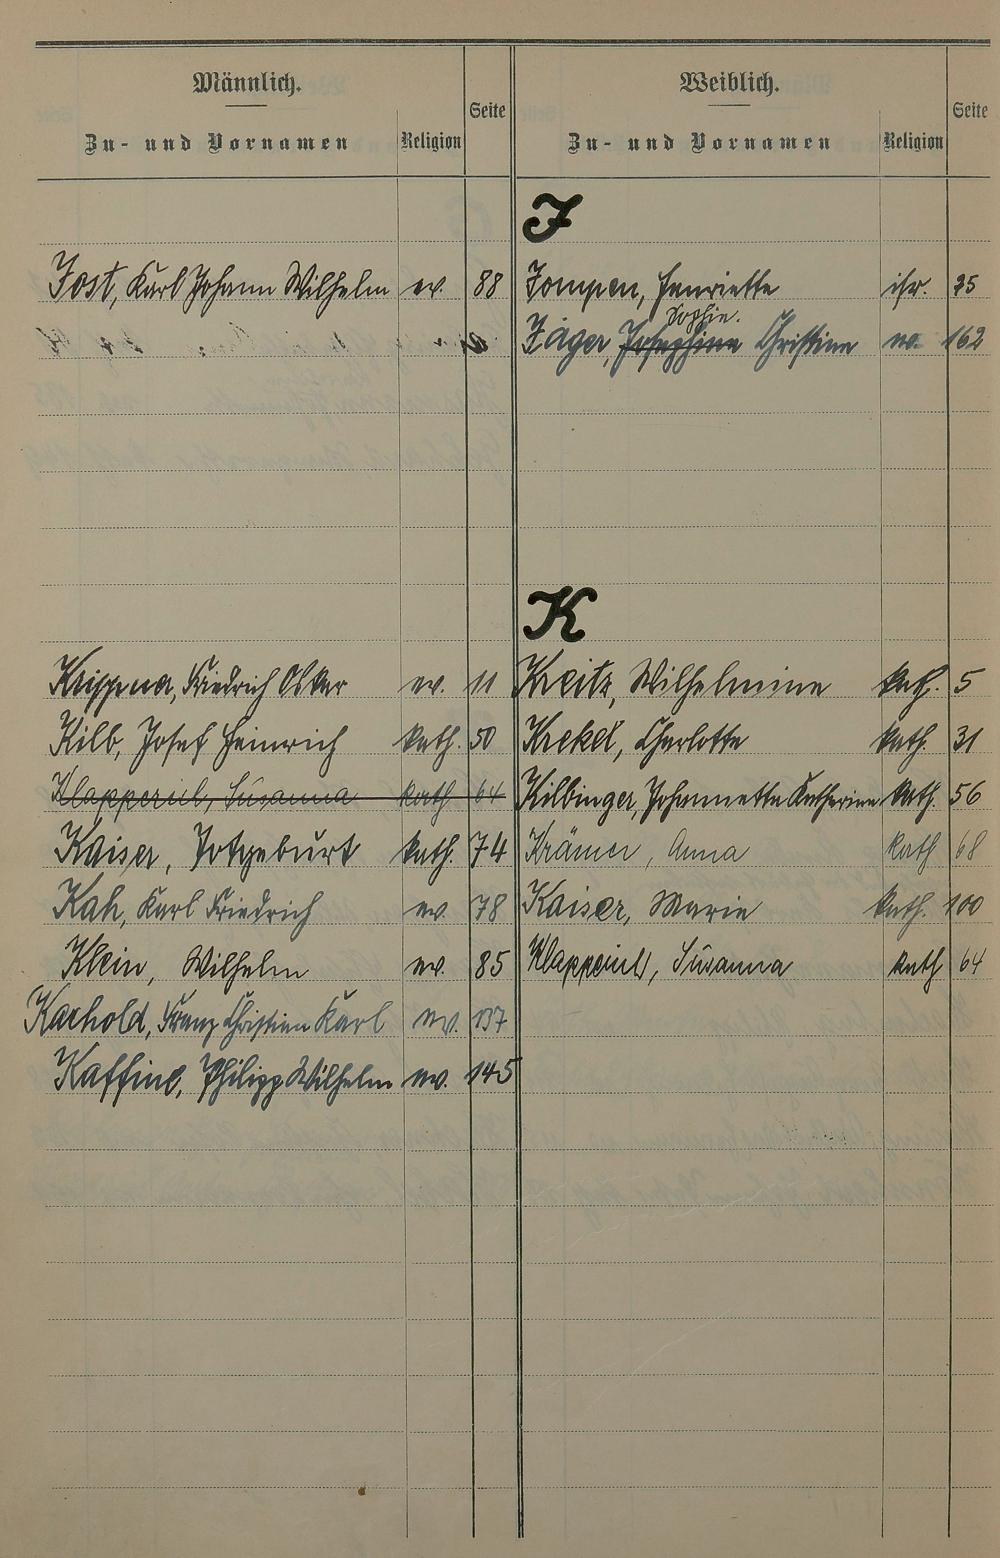 Männlich.
Zu- und Vornamen Religion Seite
Weiblich.
Zu- und Vornamen Religion Seite
J
Jost, Karl Johann Wilhelm ev. 88
Jompen, Henriette isr. 35
Sophie.
Jäger, Josephine Christine ev. 162
K
Krippena, Friedrich Oskar ev. 11
Kreitz, Wilhelmine kath. 5
Kilb, Josef Heinrich kath. 50
Krekel, Charlotte kath. 31
Klapperich, Susanna kath 64
Kilbinger, Johannetta Katharina kath. 56
Kaiser, Totgeburt kath. 74
Krämer, Anna kath 68
Kah, Karl Friedrich ev. 78
Kaiser, Marie kath. 100
Klein, Wilhelm ev. 85
Susanna kath 64
Karhold, Franz Christian Karl ev. 137
Philipp Wilhelm ev. 145